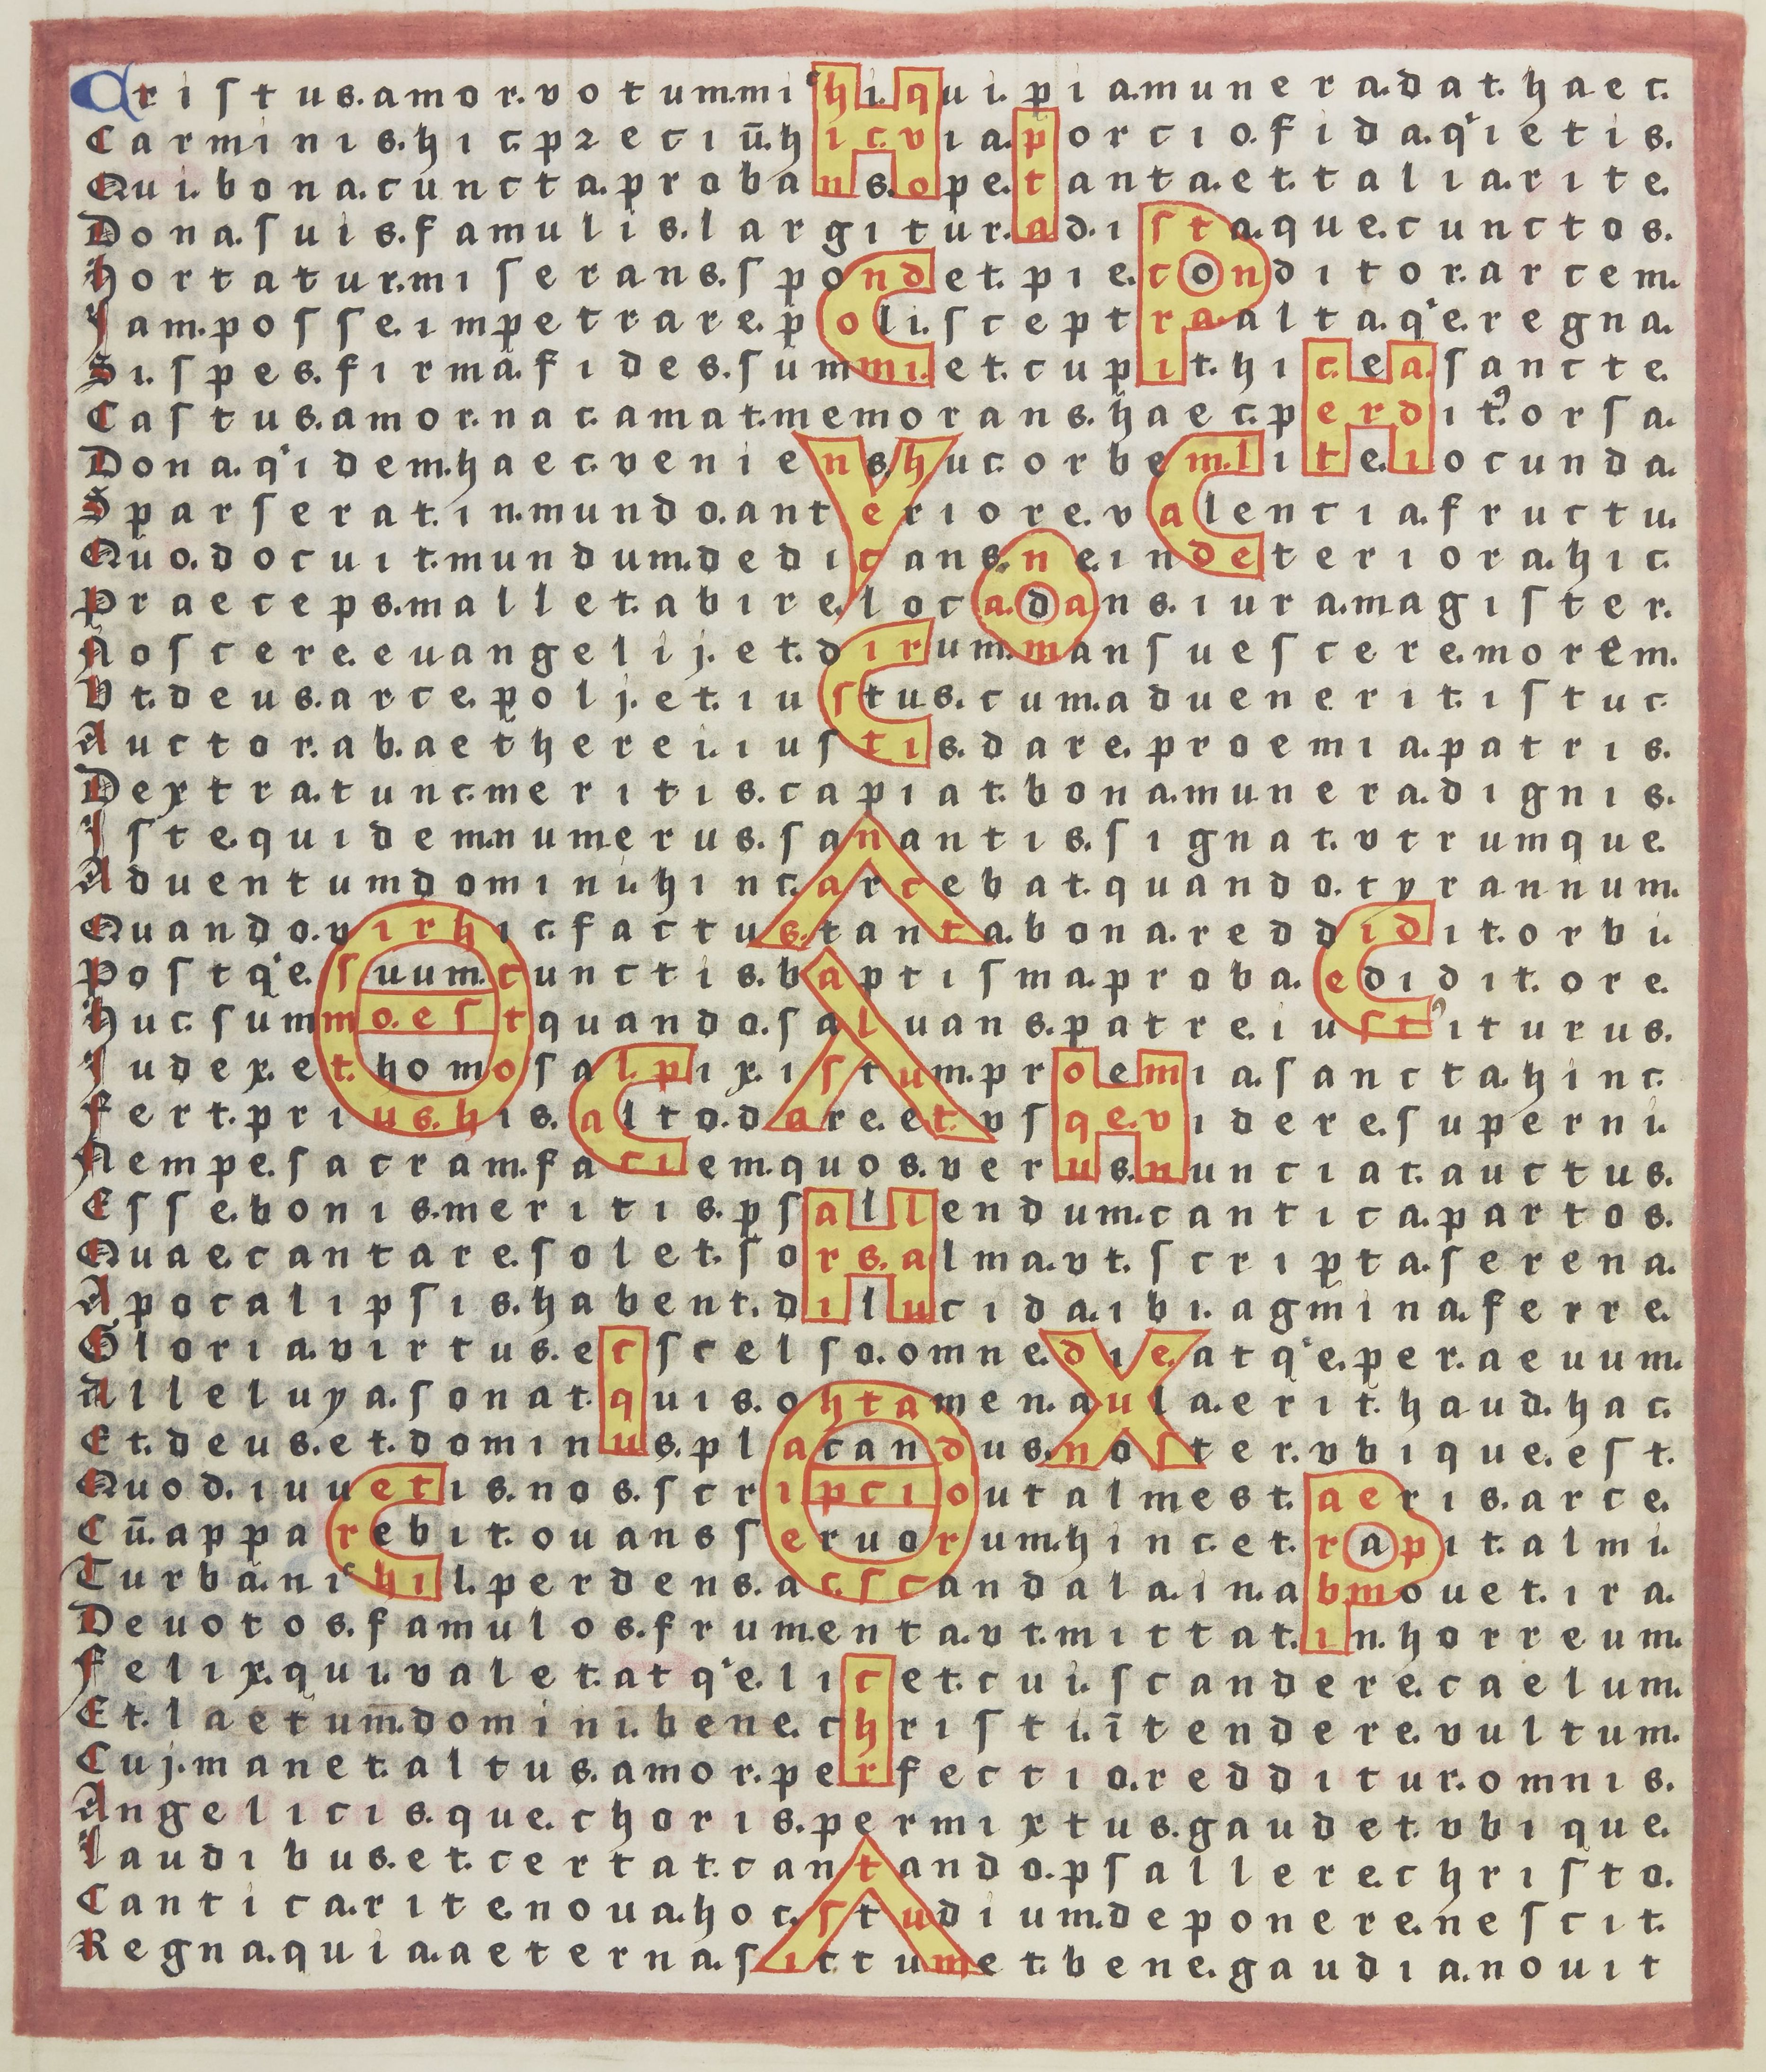 Cristus. amor. votum. mihi. qui. pia. munera. dat. haec.
Carminis. hic. preciū. hic. via. porcio. fida. qietis.
Qui. bona. cuncta. probans. ope. tanta. et. talia. rite.
Dona. suis. famulis. largitur. ad. ista. que. cunctos.
Hortatur. miserans. spondet. pie. conditor. arcem.
Jam. posse. impetrare. poli. sceptra. alta. qe. regna.
Si. spes. firma. fides. summi. et. cupit. hic. ea. sancte.
Castus. amor. nac. amat. memorans. haec. perdit. orsa.
Dona. qidem. haec. veniens. huc. orbem. lite. iocunda.
Sparserat. in. mundo. anteriore. valencia. fructu.
Quo. docuit. mundum. dedicans. ne in deteriora. hic.
Praeceps. mallet. abire. loca. dans. iura. magister.
Noscere. euangelij. et. dirum. mansuescere. morem.
Vt. deus. arce. polj. et. iustus. cum. aduenerit. istuc
Auctor. ab. aetherei. iustis. dare. proemia. patris.
Dextra. tunc. meritis. capiat. bona. munera. dignis.
Iste. quidem. numerus. sanantis. signat. vtrumque.
Aduentum domini. hinc. arcebat. quando. tyrannum.
Quando. vir hic. factus. tanta. bona. reddidit. orbi.
Postqe. suum. cunctis. baptisma. proba. edidit. ore.
Huc. summo. est quando. saluans. patre. iustiturus.
Judex. et. homo salpix. istum. proemia. sancta. hinc.
Fert. prius. his. alto. dare. et vsque. videre. superni.
Nempe. sacram. faciem. quos. verus. nunciat. auctus.
Esse. bonis. meritis. psallendum. cantica. partos.
Quae. cantare. solet. sors. alma. vt. scripta. serena.
Apocalipsis. habent. dilucida. ibi. agmina. ferre.
Gloria. virtus. ecscelso. omne. die. atqe. per. aeuum.
Alleluya. sonat. quis. oh tamen. aula. erit. haud. hac.
Et. deus. et. dominus. placandus. noster. vbique. est.
Quod. iuuet. is. nos. scripcio ut alme st. aeris. arce.
Cū. apparebit. ouans seruorum. hinc. et. rapit. almi.
Turba. nihil. perdens. ac. scandala. in. ab mouet. ira.
Deuotos. famulos. frumenta. vt. mittat. in. horreum.
Felix. qui. valet. atqe. licet. cui. scandere. caelum.
Et. laetum. domini. bene. christi. ītendere. vultum.
Cuj. manet. altus. amor. perfectio. redditur. omnis.
Angelicis. que. choris. permixtus. gaudet. vbique.
Laudibus. et. certat. cantando. psallere. christo.
Cantica. rite. noua. hoc. studium. deponere. nescit.
Regna. quia. aeterna. sictum et. bene. gaudia. nouit